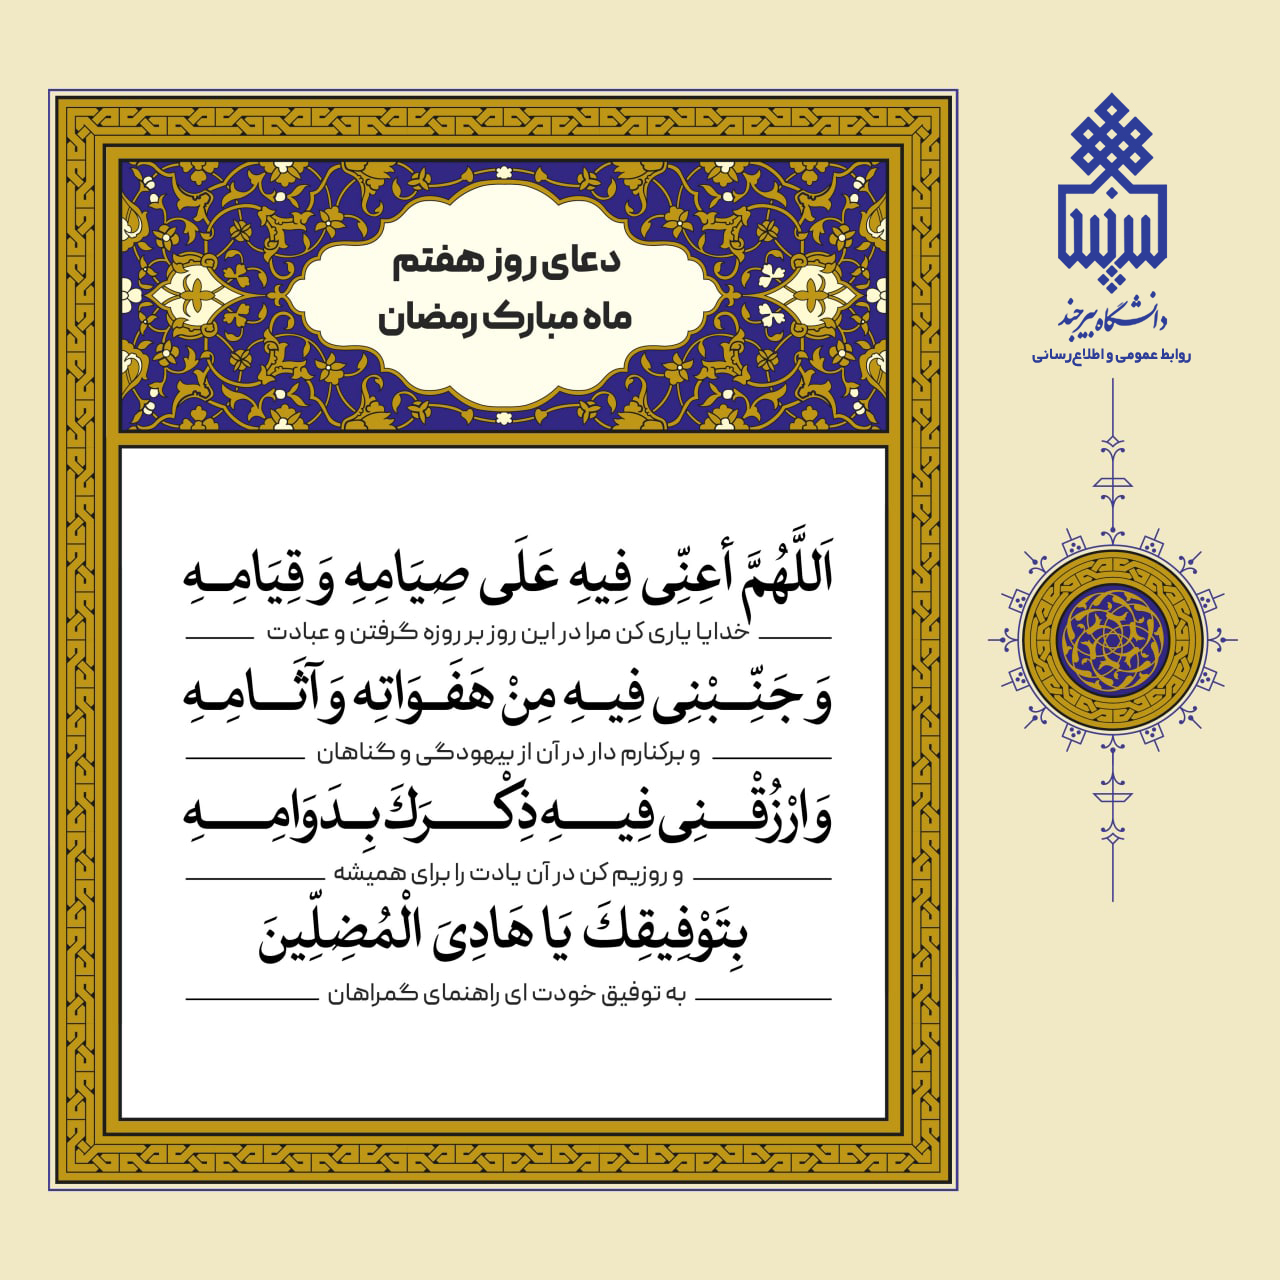 دعای روز هفتم
ماه مبارک رمضان
اَللَّهُمَّ أعِنِّی فِیهِ عَلَی صِیَامِهِ وَ قِیَامِـهِ
خدایا یاری کن مرا در این روز بر روزه گرفتن و عبادت
وَ جَنِّـبْنِی فِیـهِ مِنْ هَفَـوَاتِه وَ آثَـامِـهِ
و برکنارم دار در آن از بیهودگی و گناهان
وَ ارْزُقْـنِی فِیـهِ ذِکْـرَكَ بِـدَوَامِـهِ
و روزیم کن در آن یادت را برای همیشه
بِتَوْفِیقِكَ یَا هَادِیَ الْمُضِلِّینَ
به توفیق خودت ای راهنمای گمراهان
دانشگاه بیرجند
روابط عمومی و اطلاع‌رسانی